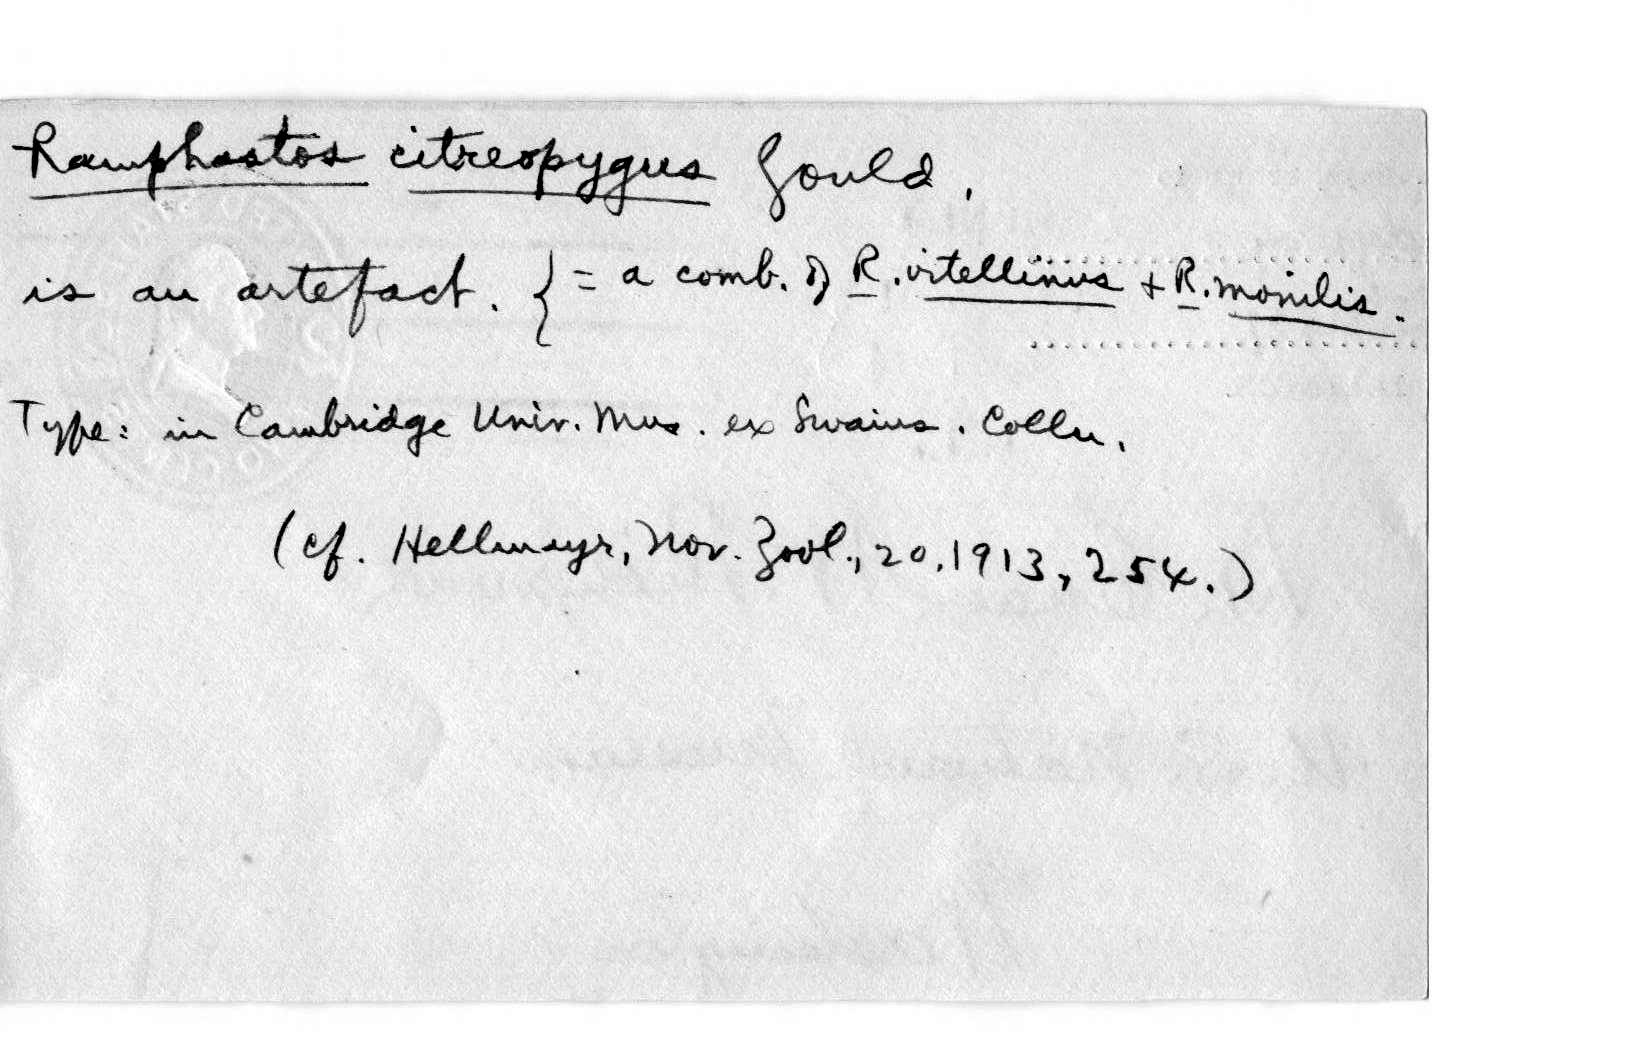 Ramphastos citreopygus Gould,
is an artefact. { = a comb. of R. vitellinus + R. monilis.
Type: in Cambridge Univ. Mus. ex Swains. Colln.
(cf. Hellmayr, Nov. Zool., 20, 1913, 254.)